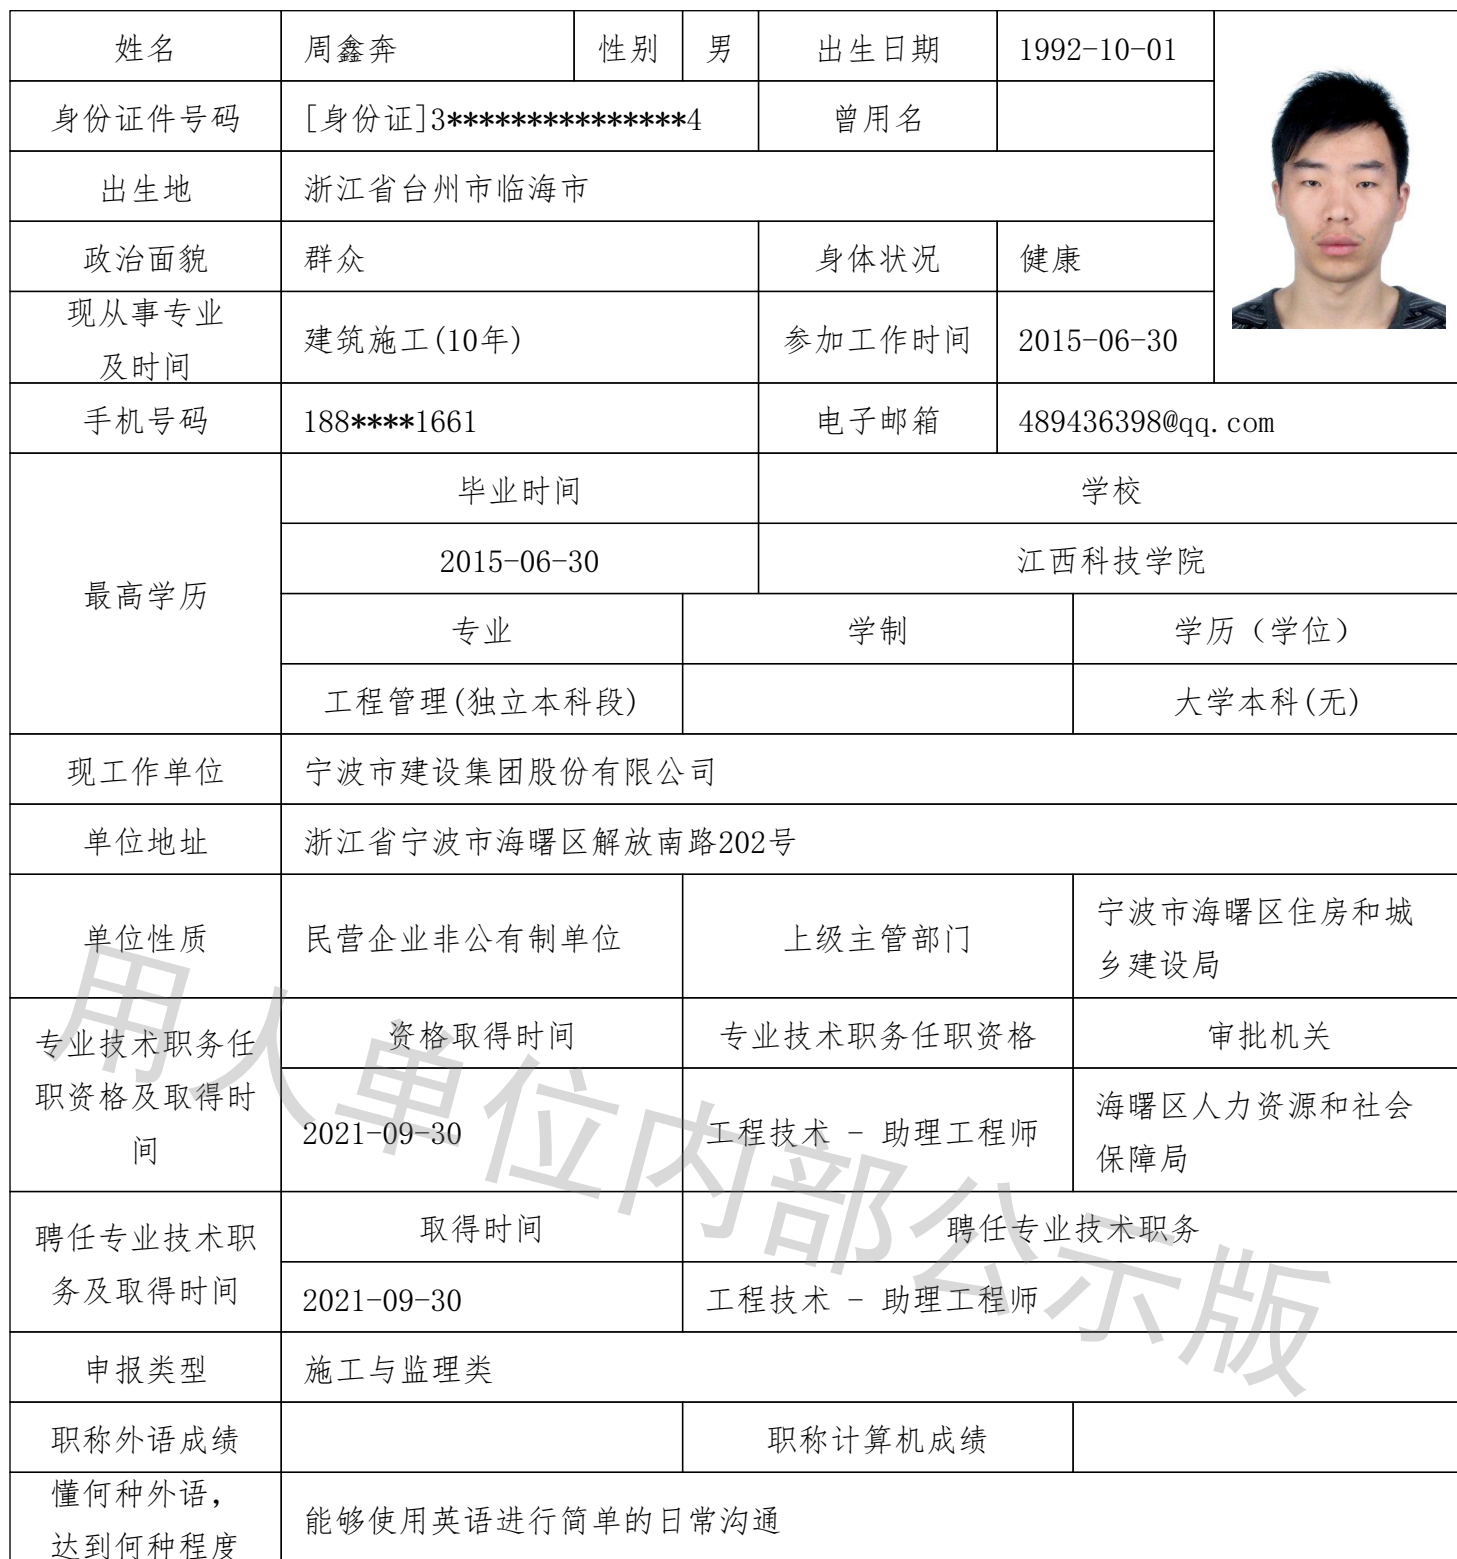 姓名 周鑫奔 性别 男 出生日期 1992-10-01
身份证件号码 [身份证]3***************4 曾用名
出生地 浙江省台州市临海市
政治面貌 群众 身体状况 健康
现从事专业
及时间
建筑施工(10年) 参加工作时间 2015-06-30
手机号码 188****1661 电子邮箱 489436398@qq.com
最高学历
毕业时间 学校
2015-06-30 江西科技学院
专业 学制 学历（学位）
工程管理(独立本科段) 大学本科(无)
现工作单位 宁波市建设集团股份有限公司
单位地址 浙江省宁波市海曙区解放南路202号
单位性质 民营企业非公有制单位 上级主管部门
宁波市海曙区住房和城
乡建设局
专业技术职务任
职资格及取得时
间
资格取得时间 专业技术职务任职资格 审批机关
2021-09-30 工程技术 - 助理工程师
海曙区人力资源和社会
保障局
聘任专业技术职
务及取得时间
取得时间 聘任专业技术职务
2021-09-30 工程技术 - 助理工程师
申报类型 施工与监理类
职称外语成绩 职称计算机成绩
懂何种外语，
达到何种程度
能够使用英语进行简单的日常沟通
用人单位内部公示版